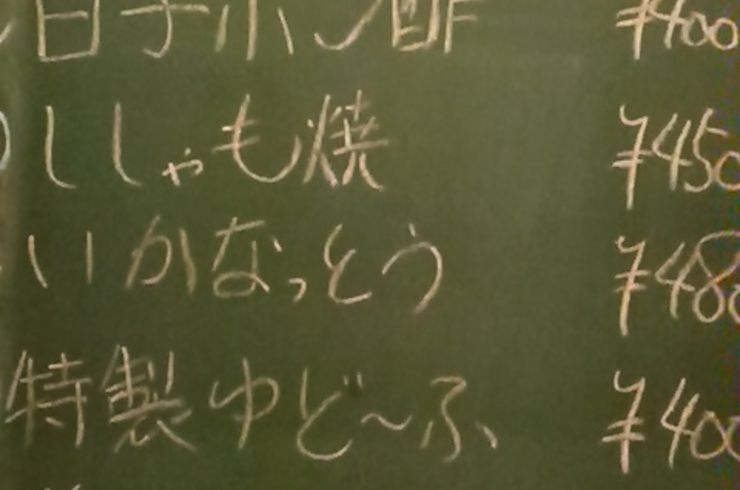 白子ポン酢 ¥400
ししゃも焼 ¥450
いかなっとう ¥480
特製ゆど〜ふ ¥400